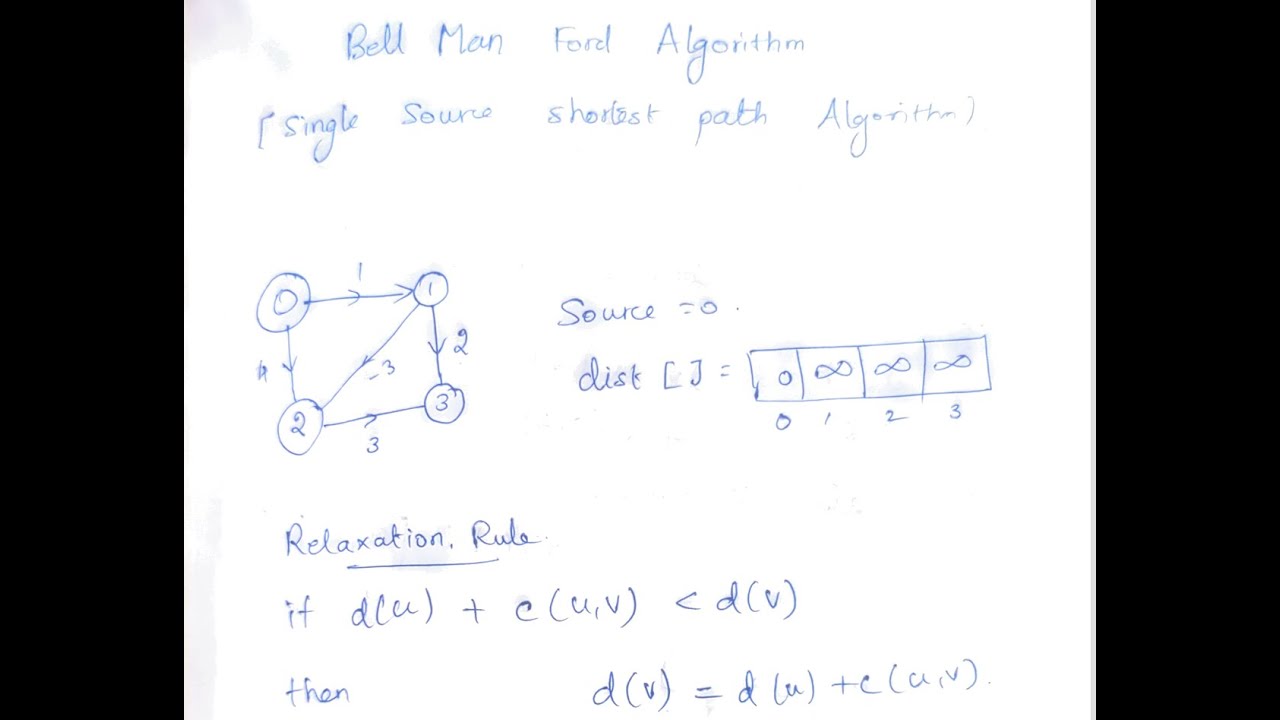 Bell Man Ford Algorithm
[Single Source shortest path Algorithm)
0 1 1
4 -3 2
2 3 3
Source = 0.
dist [ ] = 0 ∞ ∞ ∞
0 1 2 3
Relaxation. Rule.
if d(u) + c(u,v) < d(v)
then d(v) = d(u) + c(u,v).